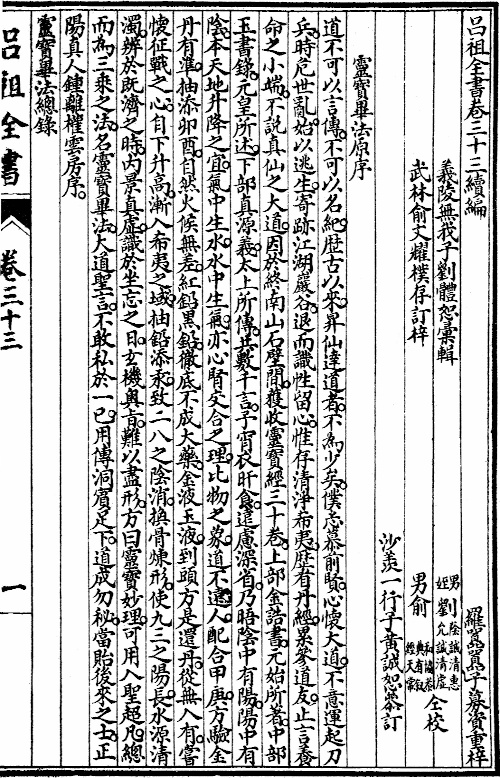 呂祖全書卷三十三續編
義陵無我子劉體恕彙輯
武林俞文燿樸存訂梓
羅鸑鷟子募資重梓
男劉蔭誠清惠
姪劉允誠清虛
男俞
仝校
沙羨一行子黃誠恕叅訂
靈寶畢法原序
道不可以言傳不可以名紀歷古以來昇仙達道者不為少矣僕志慕前賢心懷大道不意運起刀
兵時危世亂始以逃生寄跡江湖巖谷退而識性留心惟存清淨希夷歷看丹經累參道友止言養
命之小端不説真仙之大道因於終南山石壁間獲收靈寶經三十卷上部金誥書元始所著中部
玉書錄元皇所述下部真源義太上所傳共數千言予宵衣旰食遠慮深省乃晤陰中有陽陽中有
陰本天地升降之宜氣中生水水中生氣亦心腎交合之理比物之象道不遠人配合甲庚方驗金
丹有準抽添卯酉自然火候無差紅鉛黑鉛徹底不成大藥金液玉液到頭方是還丹從無入有嘗
懷征戰之心自下升高漸入希夷之域抽鉛添汞致二八之陰消換骨煉形使九三之陽長水源清
濁辨於既濟之時内景真虛識於坐忘之日玄機奧旨難以盡形方曰靈寶妙理可用入聖超凡總
而為三乘之法名靈寶畢法大道聖言不敢私於一己用傳洞賓足下道成勿秘當貽後來之士正
陽真人鍾離權雲房序
靈寶畢法總錄
呂祖全書
卷三十三
一